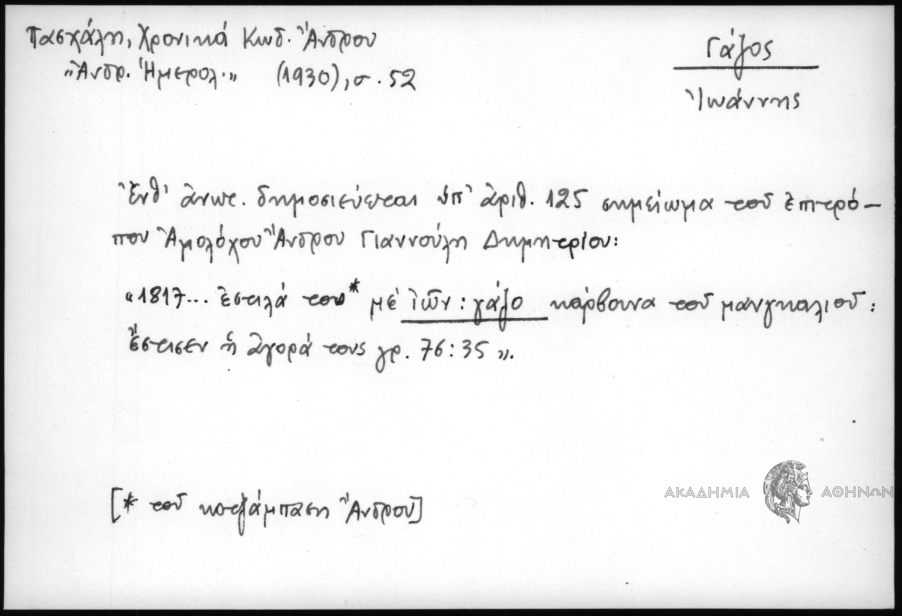 Πασχάλη, Χρονικά Κωδ. Ἄνδρου
"Ἀνδρ. Ἡμερολ." (1930), σ. 52
Γάζος
Ἰωάννης
Ἔνθ' ἀνωτ. δημοσιεύεται ὑπ' ἀριθ. 125 σημείωμα τοῦ ἐπιτρό-
που Ἀμολόχου Ἄνδρου Γιαννούλη Δημητρίου:
«1817... ἔστιλά του* μέ ἰῶν: γάζο κάρβουνα τοῦ μανγκαλιοῦ:
ἔστισεν ἡ ἀγορά τους γρ. 76:35».
[* τοῦ κοτζάμπαση Ἄνδρου]
ΑΚΑΔΗΜΙΑ ΑΘΗΝΩΝ